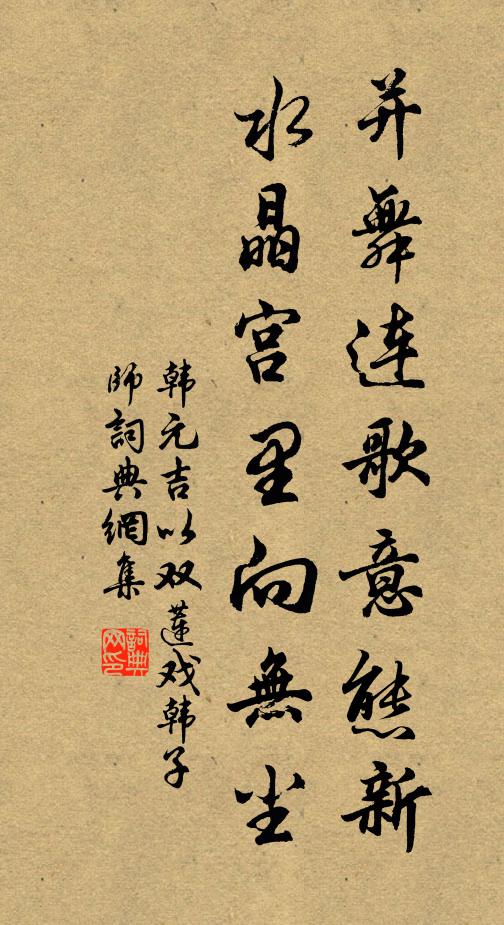 并舞连歌意态新
水晶宫里向無尘
韩元吉以双莲戏韩子
師詞典網集
詞典网印